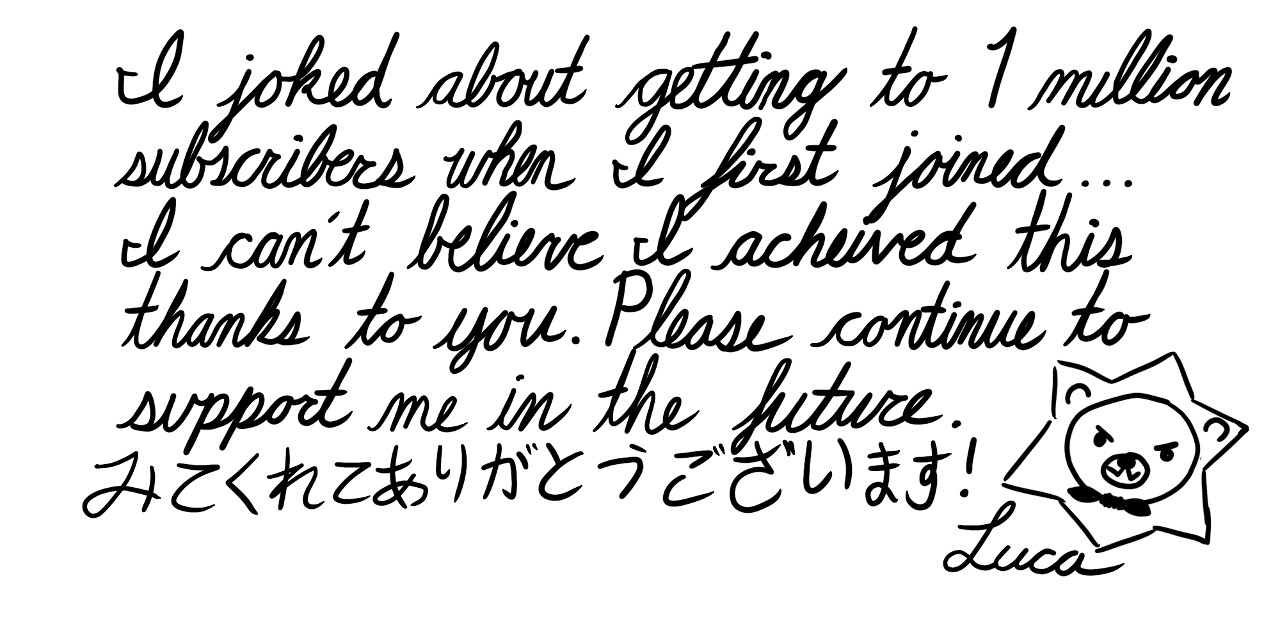 I joked about getting to 1 million
subscribers when I first joined...
I can't believe I acheived this
thanks to you. Please continue to
support me in the future.
みてくれてありがとうございます!
Luca